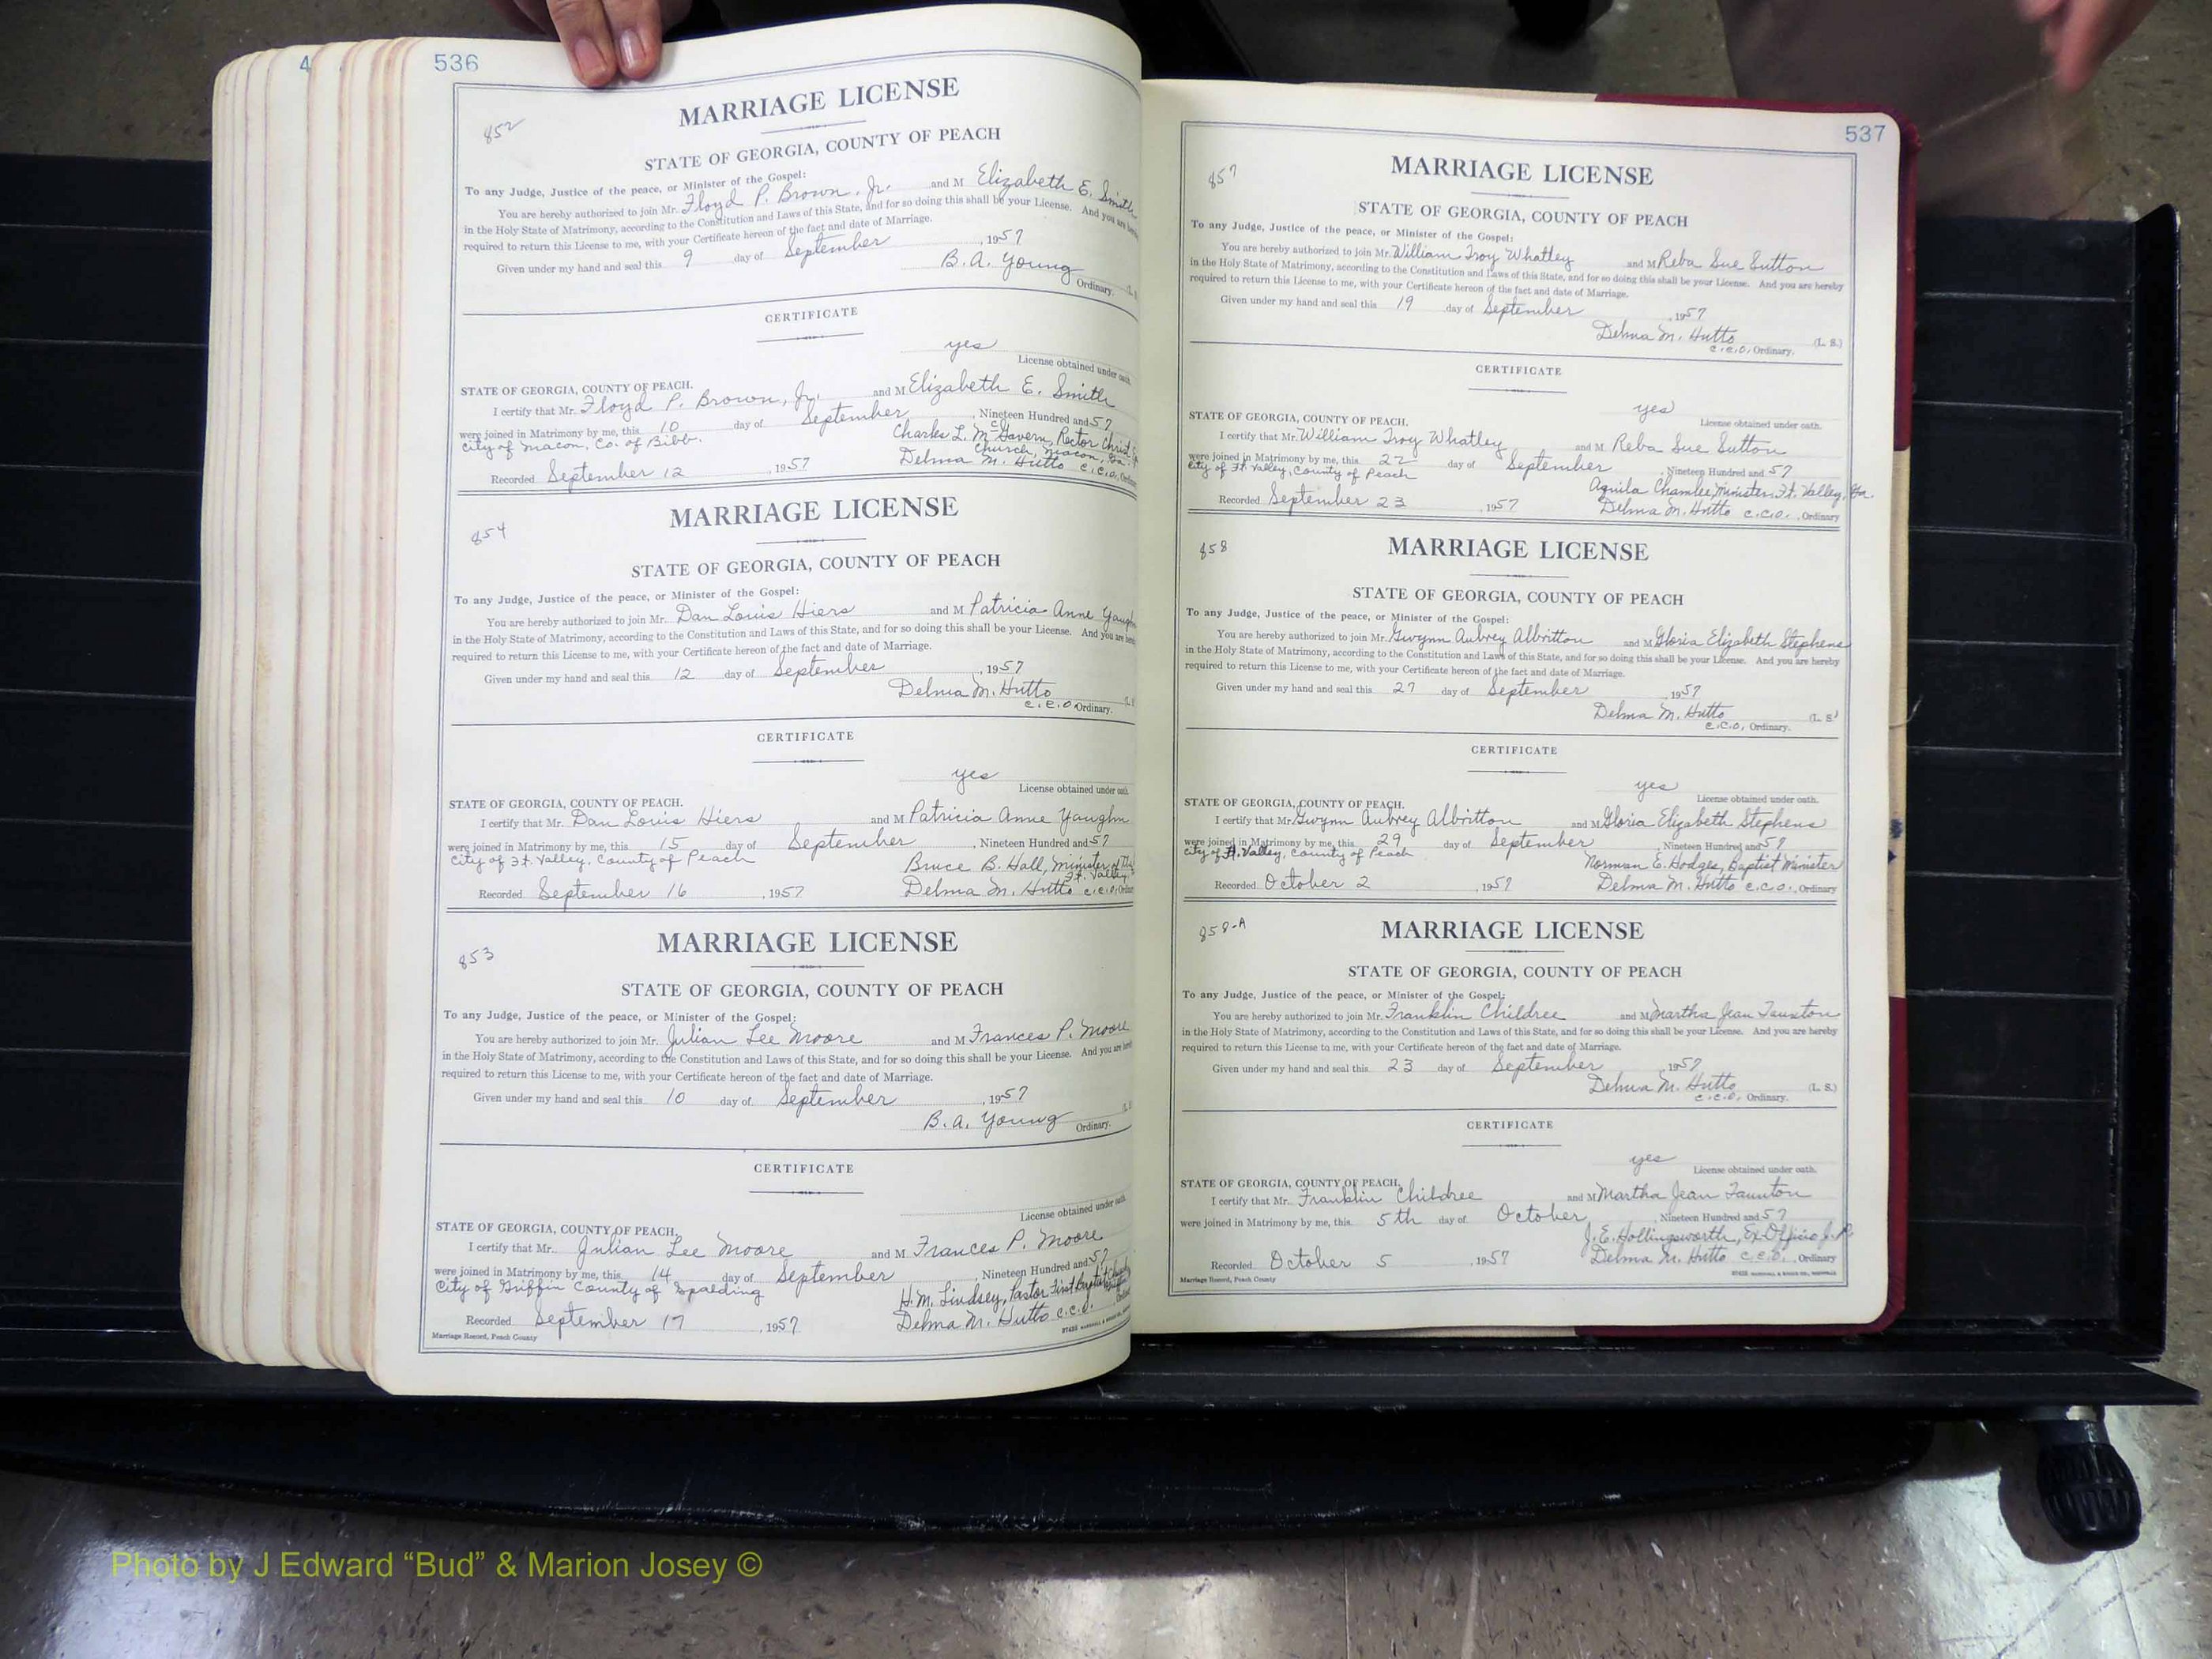 4
536
852
MARRIAGE LICENSE
STATE OF GEORGIA, COUNTY OF PEACH
To any Judge, Justice of the peace, or Minister of the Gospel:
You are hereby authorized to join Mr. Floyd P. Brown, Jr. and M Elizabeth E. Smith
in the Holy State of Matrimony, according to the Constitution and Laws of this State, and for so doing this shall be your License. And you are hereby
required to return this License to me, with your Certificate hereon of the fact and date of Marriage.
Given under my hand and seal this 9 day of September, 1957
B. A. Young Ordinary. (L.
CERTIFICATE
yes
License obtained under oath.
STATE OF GEORGIA, COUNTY OF PEACH.
I certify that Mr. Floyd P. Brown, Jr. and M Elizabeth E. Smith
were joined in Matrimony by me, this 10 day of September, Nineteen Hundred and 57
City of Macon, Co. of Bibb. Charles L. McGavern, Rector Christ
Church, Macon, Ga.
Recorded September 12, 1957 Delma M. Hutto c.c.o. Ordinary
854
MARRIAGE LICENSE
STATE OF GEORGIA, COUNTY OF PEACH
To any Judge, Justice of the peace, or Minister of the Gospel:
You are hereby authorized to join Mr. Dan Louis Hiers and M Patricia Anne Vaughn
in the Holy State of Matrimony, according to the Constitution and Laws of this State, and for so doing this shall be your License. And you are hereby
required to return this License to me, with your Certificate hereon of the fact and date of Marriage.
Given under my hand and seal this 12 day of September, 1957
Delma M. Hutto
c.c.o Ordinary. (L.
CERTIFICATE
yes
License obtained under oath.
STATE OF GEORGIA, COUNTY OF PEACH.
I certify that Mr. Dan Louis Hiers and M Patricia Anne Vaughn
were joined in Matrimony by me, this 15 day of September, Nineteen Hundred and 57
City of Ft. Valley, County of Peach Bruce B. Hall, Minister of
Ft. Valley
Recorded September 16, 1957 Delma M. Hutto c.c.o. Ordinary
853
MARRIAGE LICENSE
STATE OF GEORGIA, COUNTY OF PEACH
To any Judge, Justice of the peace, or Minister of the Gospel:
You are hereby authorized to join Mr. Julian Lee Moore and M Frances P. Moore
in the Holy State of Matrimony, according to the Constitution and Laws of this State, and for so doing this shall be your License. And you are hereby
required to return this License to me, with your Certificate hereon of the fact and date of Marriage.
Given under my hand and seal this 10 day of September, 1957
B. A. Young Ordinary. (L.
CERTIFICATE
License obtained under oath
STATE OF GEORGIA, COUNTY OF PEACH.
I certify that Mr. Julian Lee Moore and M Frances P. Moore
were joined in Matrimony by me, this 14 day of September, Nineteen Hundred and 57
City of Griffin County of Spalding H. M. Lindsey, Pastor First Baptist Church
Recorded September 17, 1957 Delma M. Hutto c.c.o.
Marriage Record, Peach County
537
857
MARRIAGE LICENSE
STATE OF GEORGIA, COUNTY OF PEACH
To any Judge, Justice of the peace, or Minister of the Gospel:
You are hereby authorized to join Mr. William Troy Whatley and M Reba Sue Sutton
in the Holy State of Matrimony, according to the Constitution and Laws of this State, and for so doing this shall be your License. And you are hereby
required to return this License to me, with your Certificate hereon of the fact and date of Marriage.
Given under my hand and seal this 19 day of September, 1957
Delma M. Hutto (L. S.)
c.c.o, Ordinary.
CERTIFICATE
yes
License obtained under oath.
STATE OF GEORGIA, COUNTY OF PEACH.
I certify that Mr. William Troy Whatley and M Reba Sue Sutton
were joined in Matrimony by me, this 22 day of September, Nineteen Hundred and 57
City of Ft. Valley, County of Peach Aquila Chamlee, Minister, Ft. Valley, Ga.
Recorded September 23, 1957 Delma M. Hutto c.c.o., Ordinary
858
MARRIAGE LICENSE
STATE OF GEORGIA, COUNTY OF PEACH
To any Judge, Justice of the peace, or Minister of the Gospel:
You are hereby authorized to join Mr. Gwynn Aubrey Albritton and M Gloria Elizabeth Stephens
in the Holy State of Matrimony, according to the Constitution and Laws of this State, and for so doing this shall be your License. And you are hereby
required to return this License to me, with your Certificate hereon of the fact and date of Marriage.
Given under my hand and seal this 27 day of September, 1957
Delma M. Hutto (L. S.)
c.c.o, Ordinary.
CERTIFICATE
yes
License obtained under oath.
STATE OF GEORGIA, COUNTY OF PEACH.
I certify that Mr. Gwynn Aubrey Albritton and M Gloria Elizabeth Stephens
were joined in Matrimony by me, this 29 day of September, Nineteen Hundred and 57
City of Ft. Valley, County of Peach Norman E. Hodges, Baptist Minister
Recorded October 2, 1957 Delma M. Hutto c.c.o., Ordinary
858-A
MARRIAGE LICENSE
STATE OF GEORGIA, COUNTY OF PEACH
To any Judge, Justice of the peace, or Minister of the Gospel:
You are hereby authorized to join Mr. Franklin Childree and M Martha Jean Taunton
in the Holy State of Matrimony, according to the Constitution and Laws of this State, and for so doing this shall be your License. And you are hereby
required to return this License to me, with your Certificate hereon of the fact and date of Marriage.
Given under my hand and seal this 23 day of September, 1957
Delma M. Hutto (L. S.)
c.c.o, Ordinary.
CERTIFICATE
yes
License obtained under oath.
STATE OF GEORGIA, COUNTY OF PEACH.
I certify that Mr. Franklin Childree and M Martha Jean Taunton
were joined in Matrimony by me, this 5th day of October, Nineteen Hundred and 57
J. E. Hollingsworth, Ex Officio J. P.
Recorded October 5, 1957 Delma M. Hutto c.c.o., Ordinary
Marriage Record, Peach County
Photo by J Edward “Bud” & Marion Josey ©